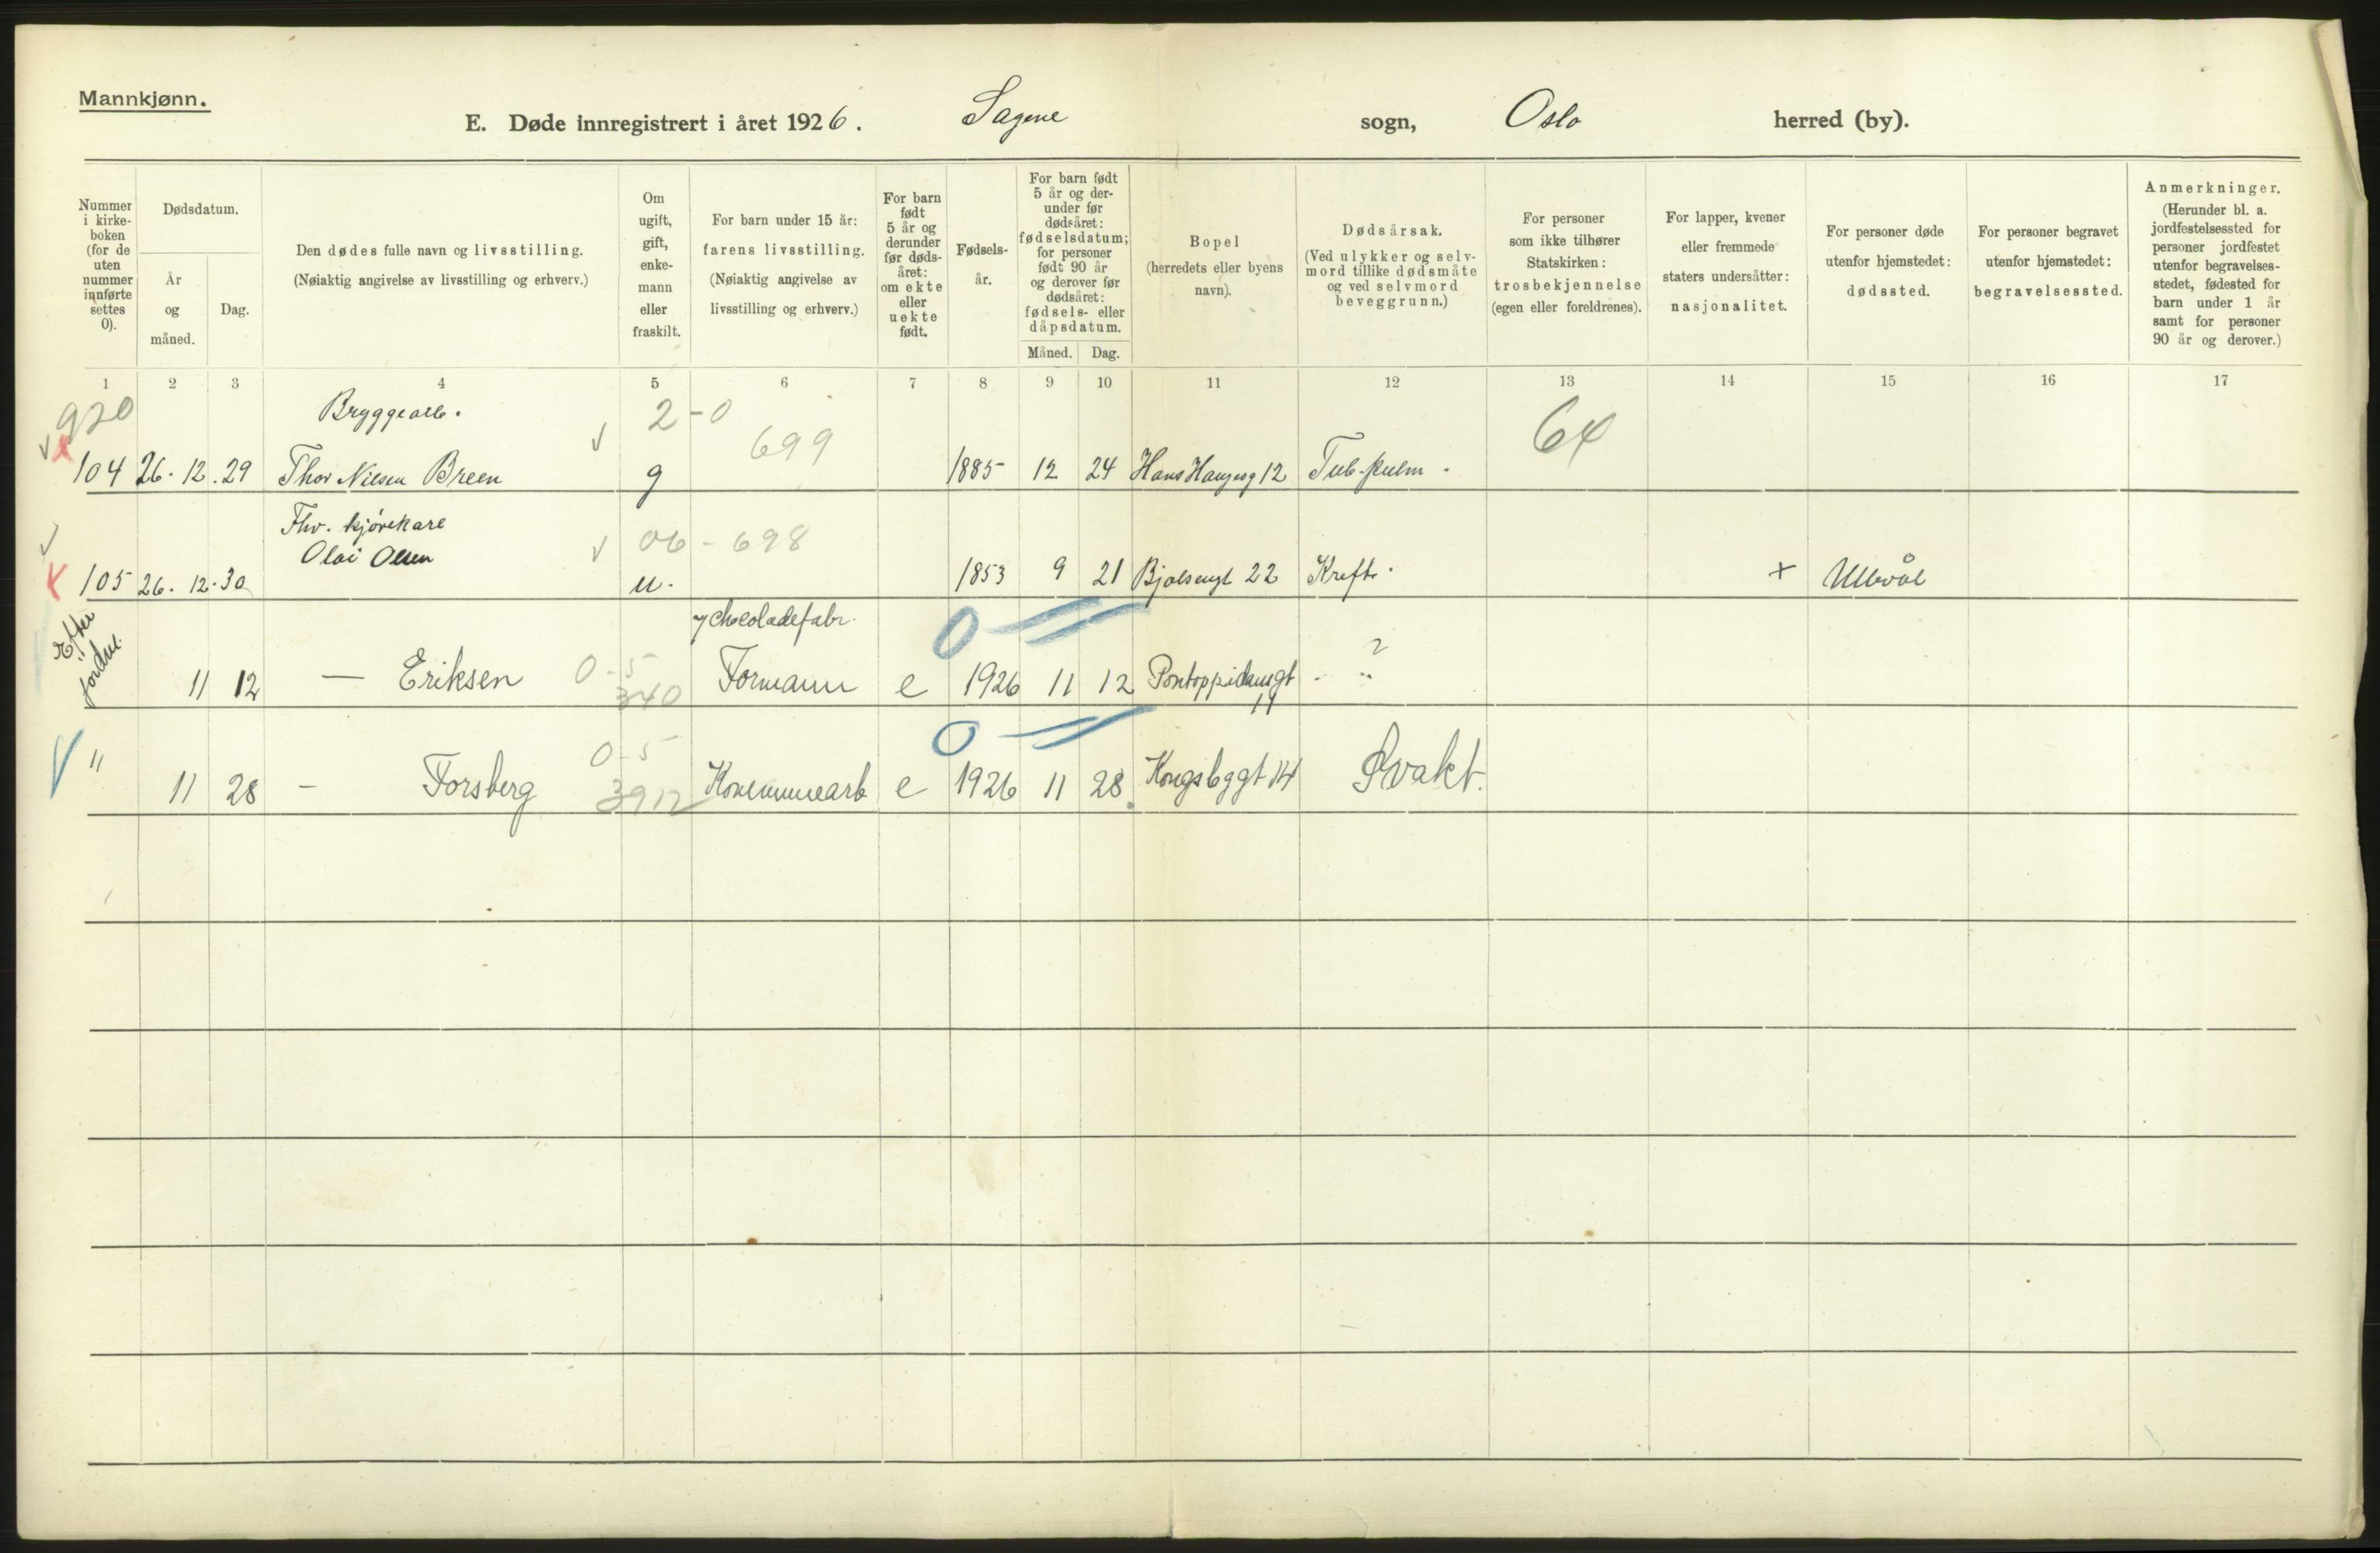 Mannkjønn.
E. Døde innregistrert i året 1926. Sagene sogn, Oslo herred (by).
Nummer i kirke-boken (for de uten nummer innførte settes 0).
Dødsdatum.
År og måned.
Dag.
Den dødes fulle navn og livsstilling.
(Nøiaktig angivelse av livsstilling og erhverv.)
Om ugift, gift, enke-mann eller fraskilt.
For barn under 15 år: farens livsstilling.
(Nøiaktig angivelse av livsstilling og erhverv.)
For barn født 5 år og derunder før døds-året: om ekte eller uekte født.
Fødsels-år.
For barn født 5 år og der-under før dødsåret: fødselsdatum; for personer født 90 år og derover før dødsåret: fødsels- eller dåpsdatum.
Måned. Dag.
Bopel
(herredets eller byens navn).
Dødsårsak.
(Ved ulykker og selv-mord tillike dødsmåte og ved selvmord beveggrunn.)
For personer som ikke tilhører Statskirken: trosbekjennelse (egen eller foreldrenes).
For lapper, kvener eller fremmede staters undersåtter: nasjonalitet.
For personer døde utenfor hjemstedet: dødssted.
For personer begravet utenfor hjemstedet: begravelsessted.
Anmerkninger.
(Herunder bl. a. jordfestelsessted for personer jordfestet utenfor begravelses-stedet, fødested for barn under 1 år samt for personer 90 år og derover.)
1 2 3 4 5 6 7 8 9 10 11 12 13 14 15 16 17
920 Bryggearb. 2-0 699 64
104 26. 12. 29 Thor Nilsen Breen g 1885 12 24 Hans Haugesg 12 Tub. pulm.
Fhv. kjørekarl 06-698
Olai Olsen
105 26. 12. 30 u. 1853 9 21 Bjølsengt 22 Kreft. + Ullevål
Efter jordm.
chocoladefabr. 0
11 12 — Eriksen 0-5 340 Formann e 1926 11 12 Pontoppidansgt 11 ?
0
" 11 28 - Forsberg 0-5 3912 e 1926 11 28 Kongsbggt 14 Svakt.